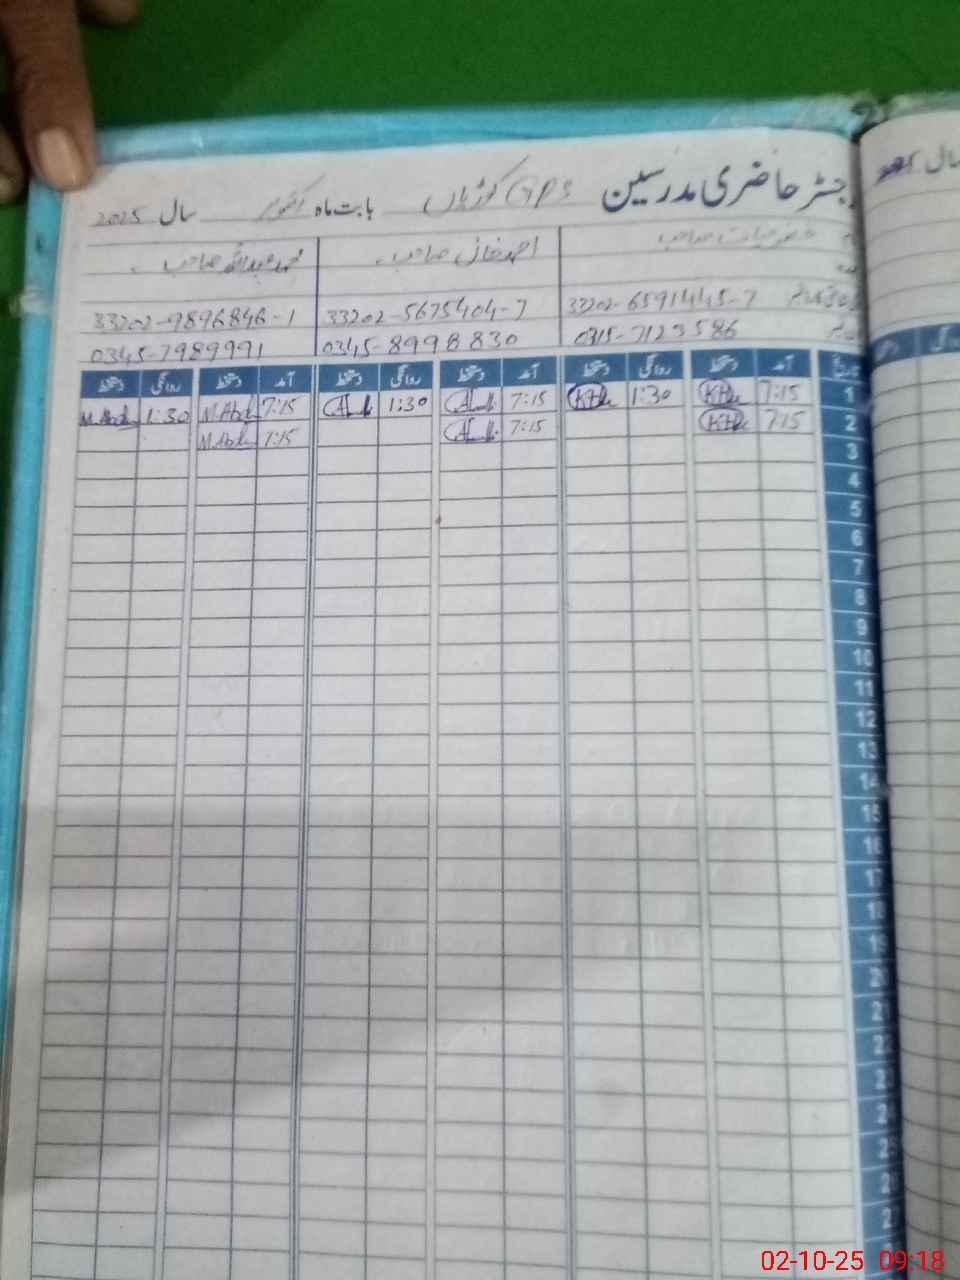 رجسٹر حاضری مدرسین GPS بابت ماہ اکتوبر سال 2025
خضر حیات صاحب احمد خان صاحب محمد عبداللہ صاحب
33202-6591445-7 33202-5675404-7 33202-9896846-1
0315-7123586 0345-8998830 0345-7989991
تاریخ آمد دستخط روانگی دستخط آمد دستخط روانگی دستخط آمد دستخط روانگی دستخط
1 7:15 1:30 7:15 1:30 7:15 M.Abd 1:30 M.Abd
2 7:15 7:15 7:15 M.Abd
3
4
5
6
7
8
9
10
11
12
13
14
15
16
17
18
19
20
21
22
23
24
25
26
27
سال
02-10-25 09:18